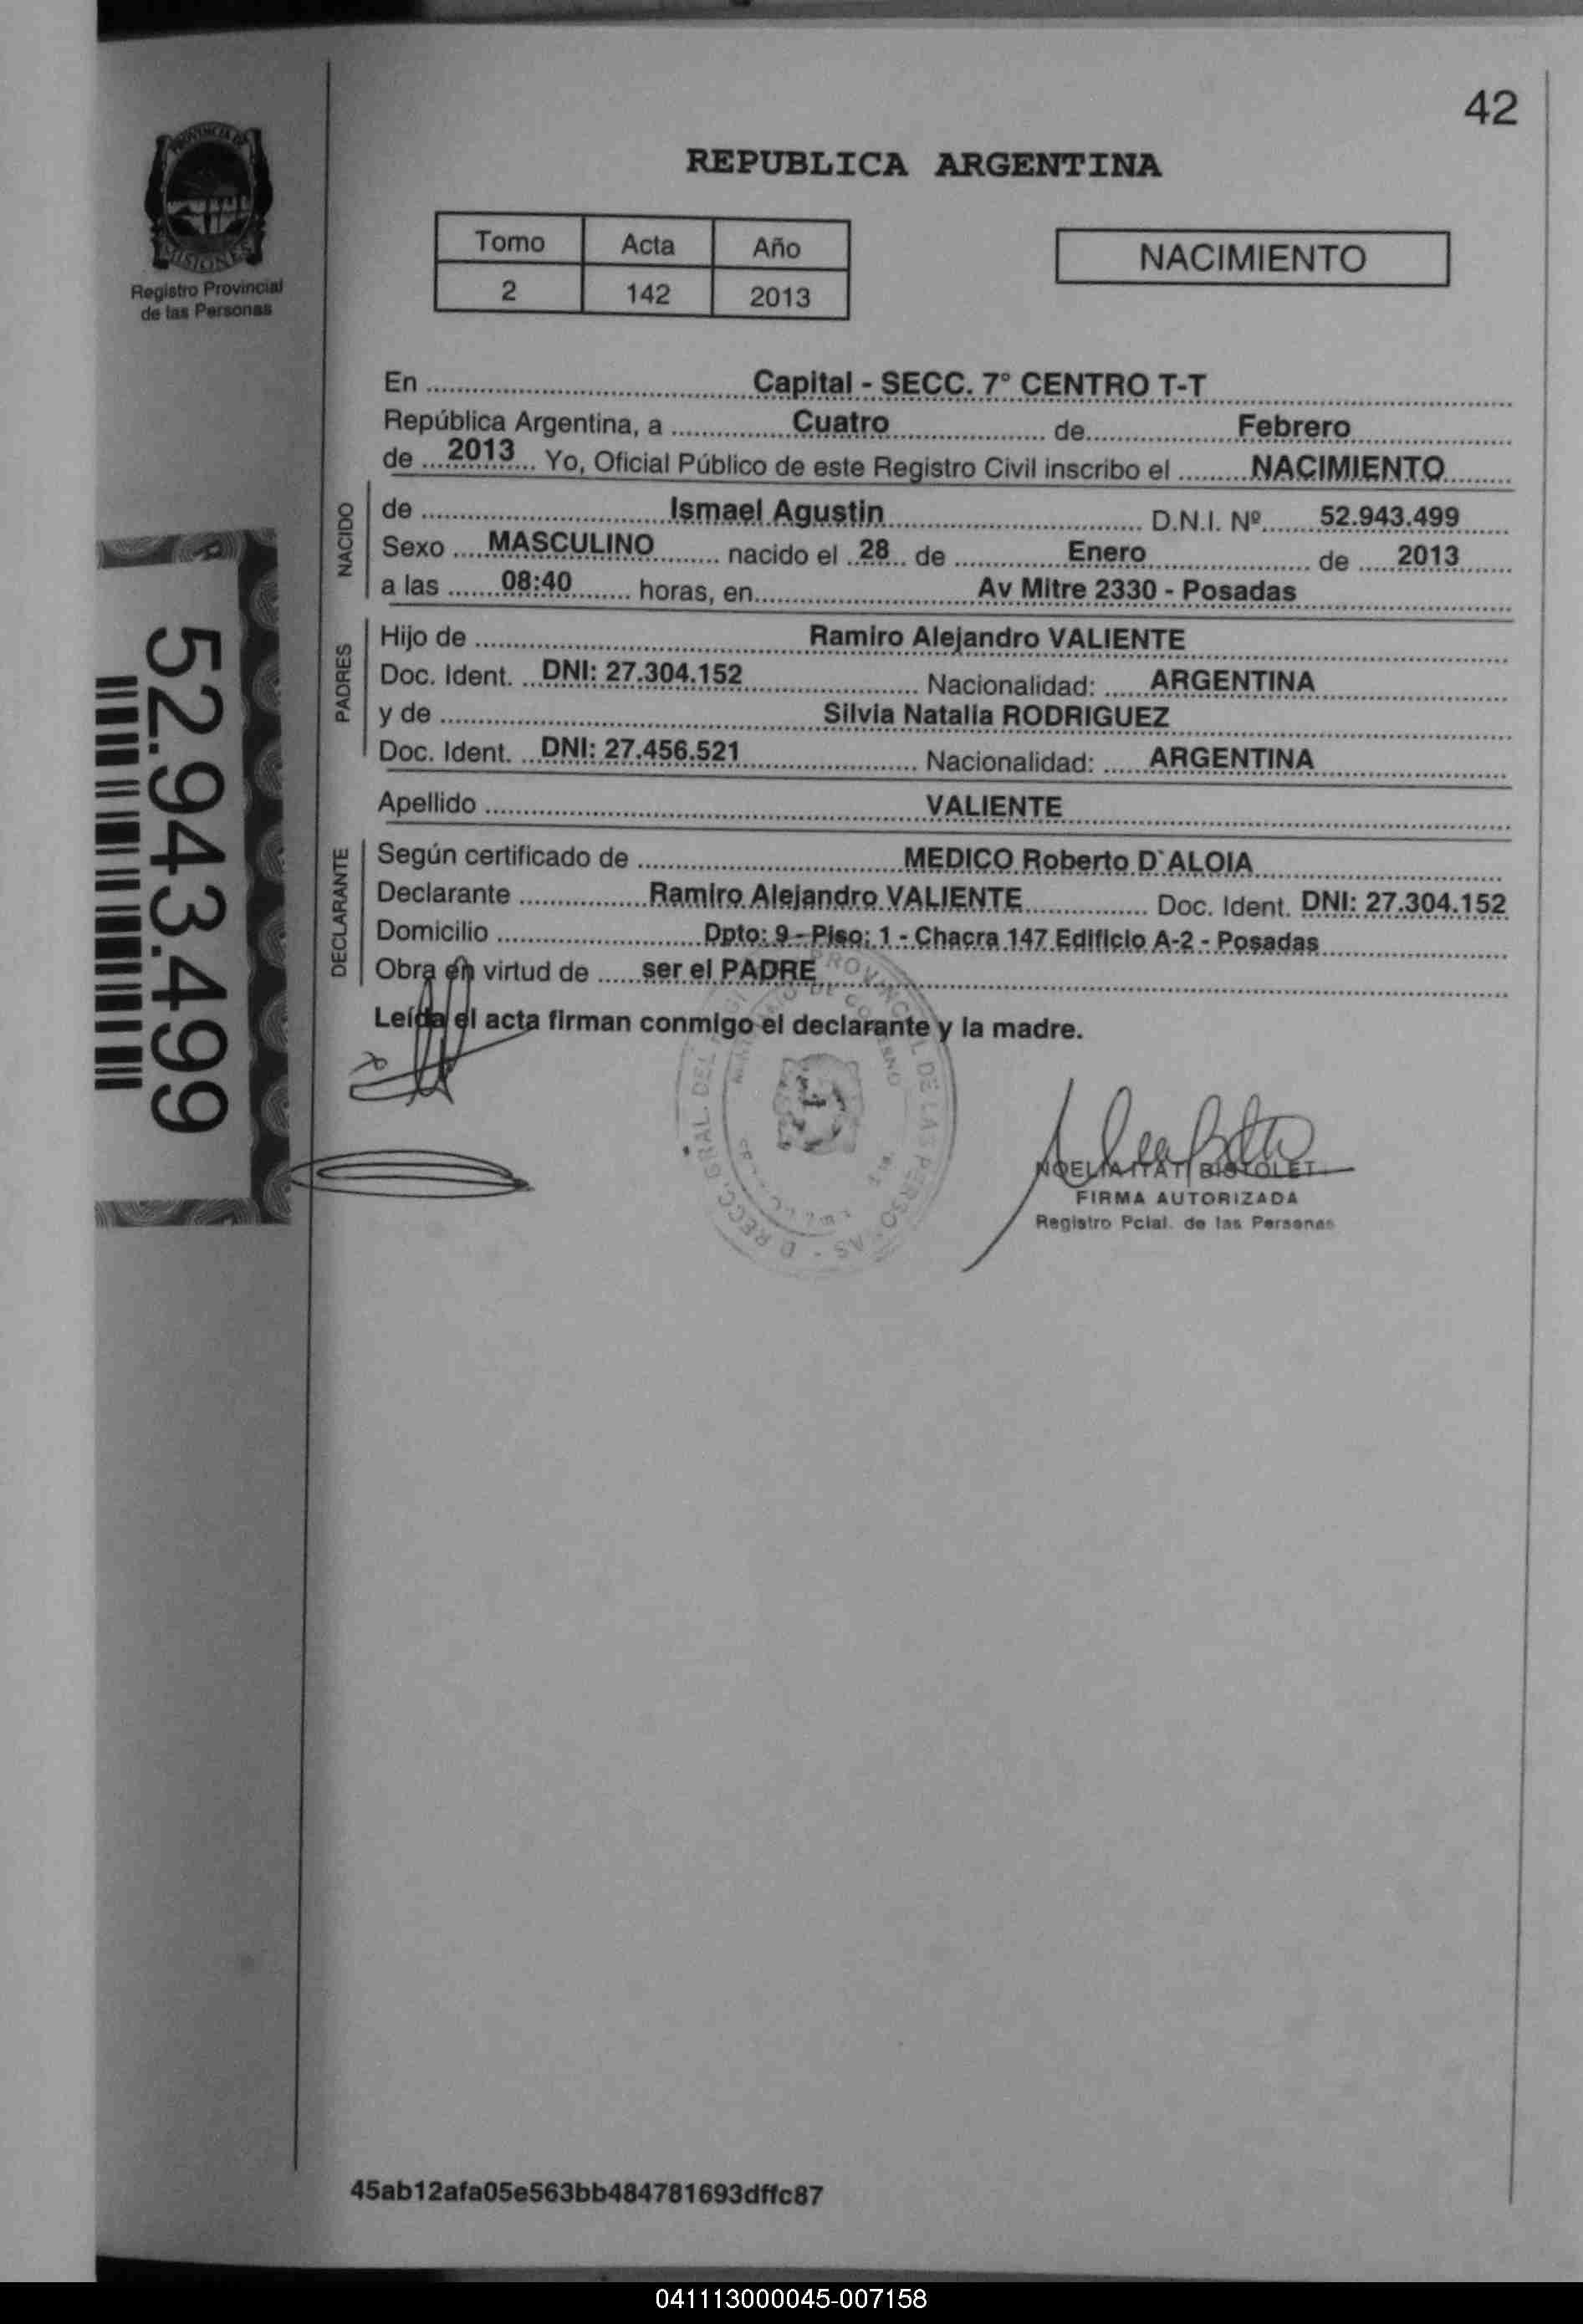 42
REPUBLICA ARGENTINA
PROVINCIA DE
MISIONES
Registro Provincial
de las Personas
Tomo Acta Año
2 142 2013
NACIMIENTO
En Capital - SECC. 7° CENTRO T-T
República Argentina, a Cuatro de Febrero
de 2013 Yo, Oficial Público de este Registro Civil inscribo el NACIMIENTO
NACIDO
de Ismael Agustin D.N.I. Nº 52.943.499
Sexo MASCULINO nacido el 28 de Enero de 2013
a las 08:40 horas, en Av Mitre 2330 - Posadas
PADRES
Hijo de Ramiro Alejandro VALIENTE
Doc. Ident. DNI: 27.304.152 Nacionalidad: ARGENTINA
y de Silvia Natalia RODRIGUEZ
Doc. Ident. DNI: 27.456.521 Nacionalidad: ARGENTINA
Apellido VALIENTE
DECLARANTE
Según certificado de MEDICO Roberto D`ALOIA
Declarante Ramiro Alejandro VALIENTE Doc. Ident. DNI: 27.304.152
Domicilio Dpto: 9 - Piso: 1 - Chacra 147 Edificio A-2 - Posadas
Obra en virtud de ser el PADRE
Leída el acta firman conmigo el declarante y la madre.
52.943.499
NOELIA ITATI BISTOLET
FIRMA AUTORIZADA
Registro Pcial. de las Personas
45ab12afa05e563bb484781693dffc87
041113000045-007158